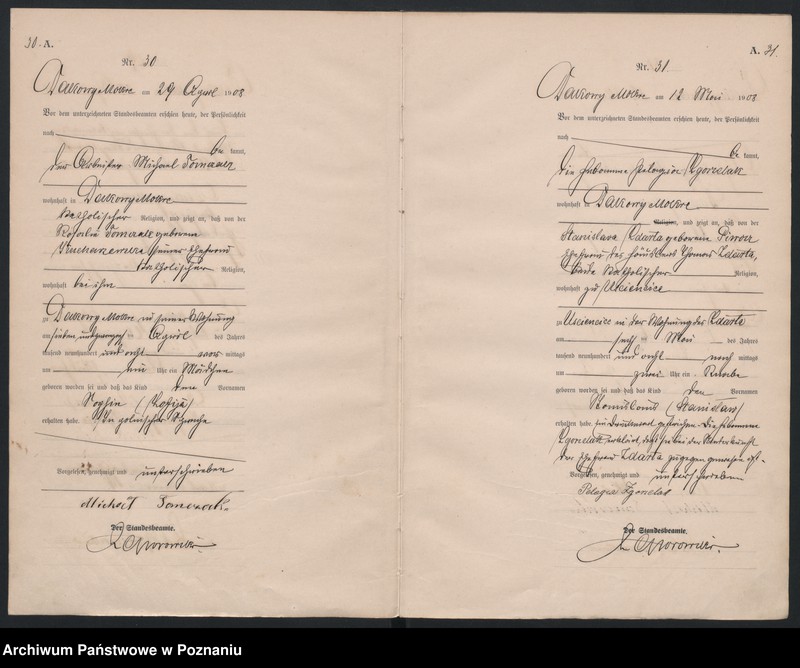 30. A.
Nr. 30
Dalkowy Mokre am 29 April 1908
Vor dem unterzeichneten Standesbeamten erschien heute, der Persönlichkeit
nach
be kannt,
der Arbeiter Michael Tomczak
wohnhaft in Dalkowy Mokre
katholischer Religion, und zeigt an, daß von der
Rosalie Tomczak geborenen
seiner Ehefrau
katholischer Religion,
wohnhaft bei ihm
zu Dalkowy Mokre in seiner Wohnung
am sieben und zwanzigsten April des Jahres
tausend neunhundert und acht vor mittags
um ein Uhr ein Mädchen
geboren worden sei und daß das Kind den Vornamen
Sophie (Zofija)
erhalten habe. In polnischer Sprache
Vorgelesen, genehmigt und unterschrieben
Michał Tomczak
Der Standesbeamte.
A. 31.
Nr. 31.
Dalkowy Mokre am 12 Mai 1908
Vor dem unterzeichneten Standesbeamten erschien heute, der Persönlichkeit
nach
be kannt,
die Hebamme Pelagia Zgorzelak
wohnhaft Dalkowy Mokre
Religion, und zeigt an, daß von der
Stanislawa Zdarta geborenen
Ehefrau des Häuslers Thomas Zdarta,
beide katholischer Religion,
wohnhaft zu Usciencice
zu Usciencice in der Wohnung der Zdarta
am Mai des Jahres
tausend neunhundert und acht nach mittags
um zwei Uhr ein Knabe
geboren worden sei und daß das Kind den Vornamen
Stanislaus (Stanisław)
erhalten habe. ein Druckwort gestrichen. Die Hebamme
Zgorzelak erklärt, daß sie bei der Niederkunft
der Ehefrau Zdarta zugegen gewesen ist.
Vorgelesen, genehmigt und unterschrieben
Pelagia Zgorzelak
Der Standesbeamte.
Archiwum Państwowe w Poznaniu